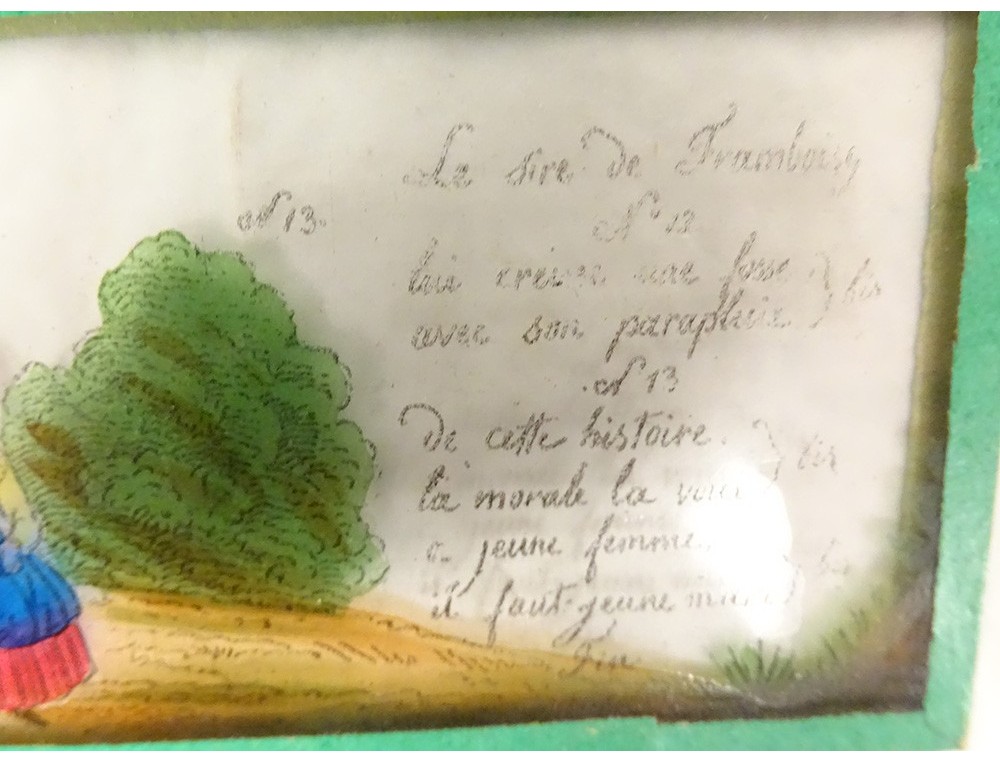 N 13.
Le sire de Framboisy
N° 12
lui creusa une fosse
avec son parapluie } bis
N 13
De cette histoire
la morale la voici } bis
a jeune femme
il faut jeune mari
fin